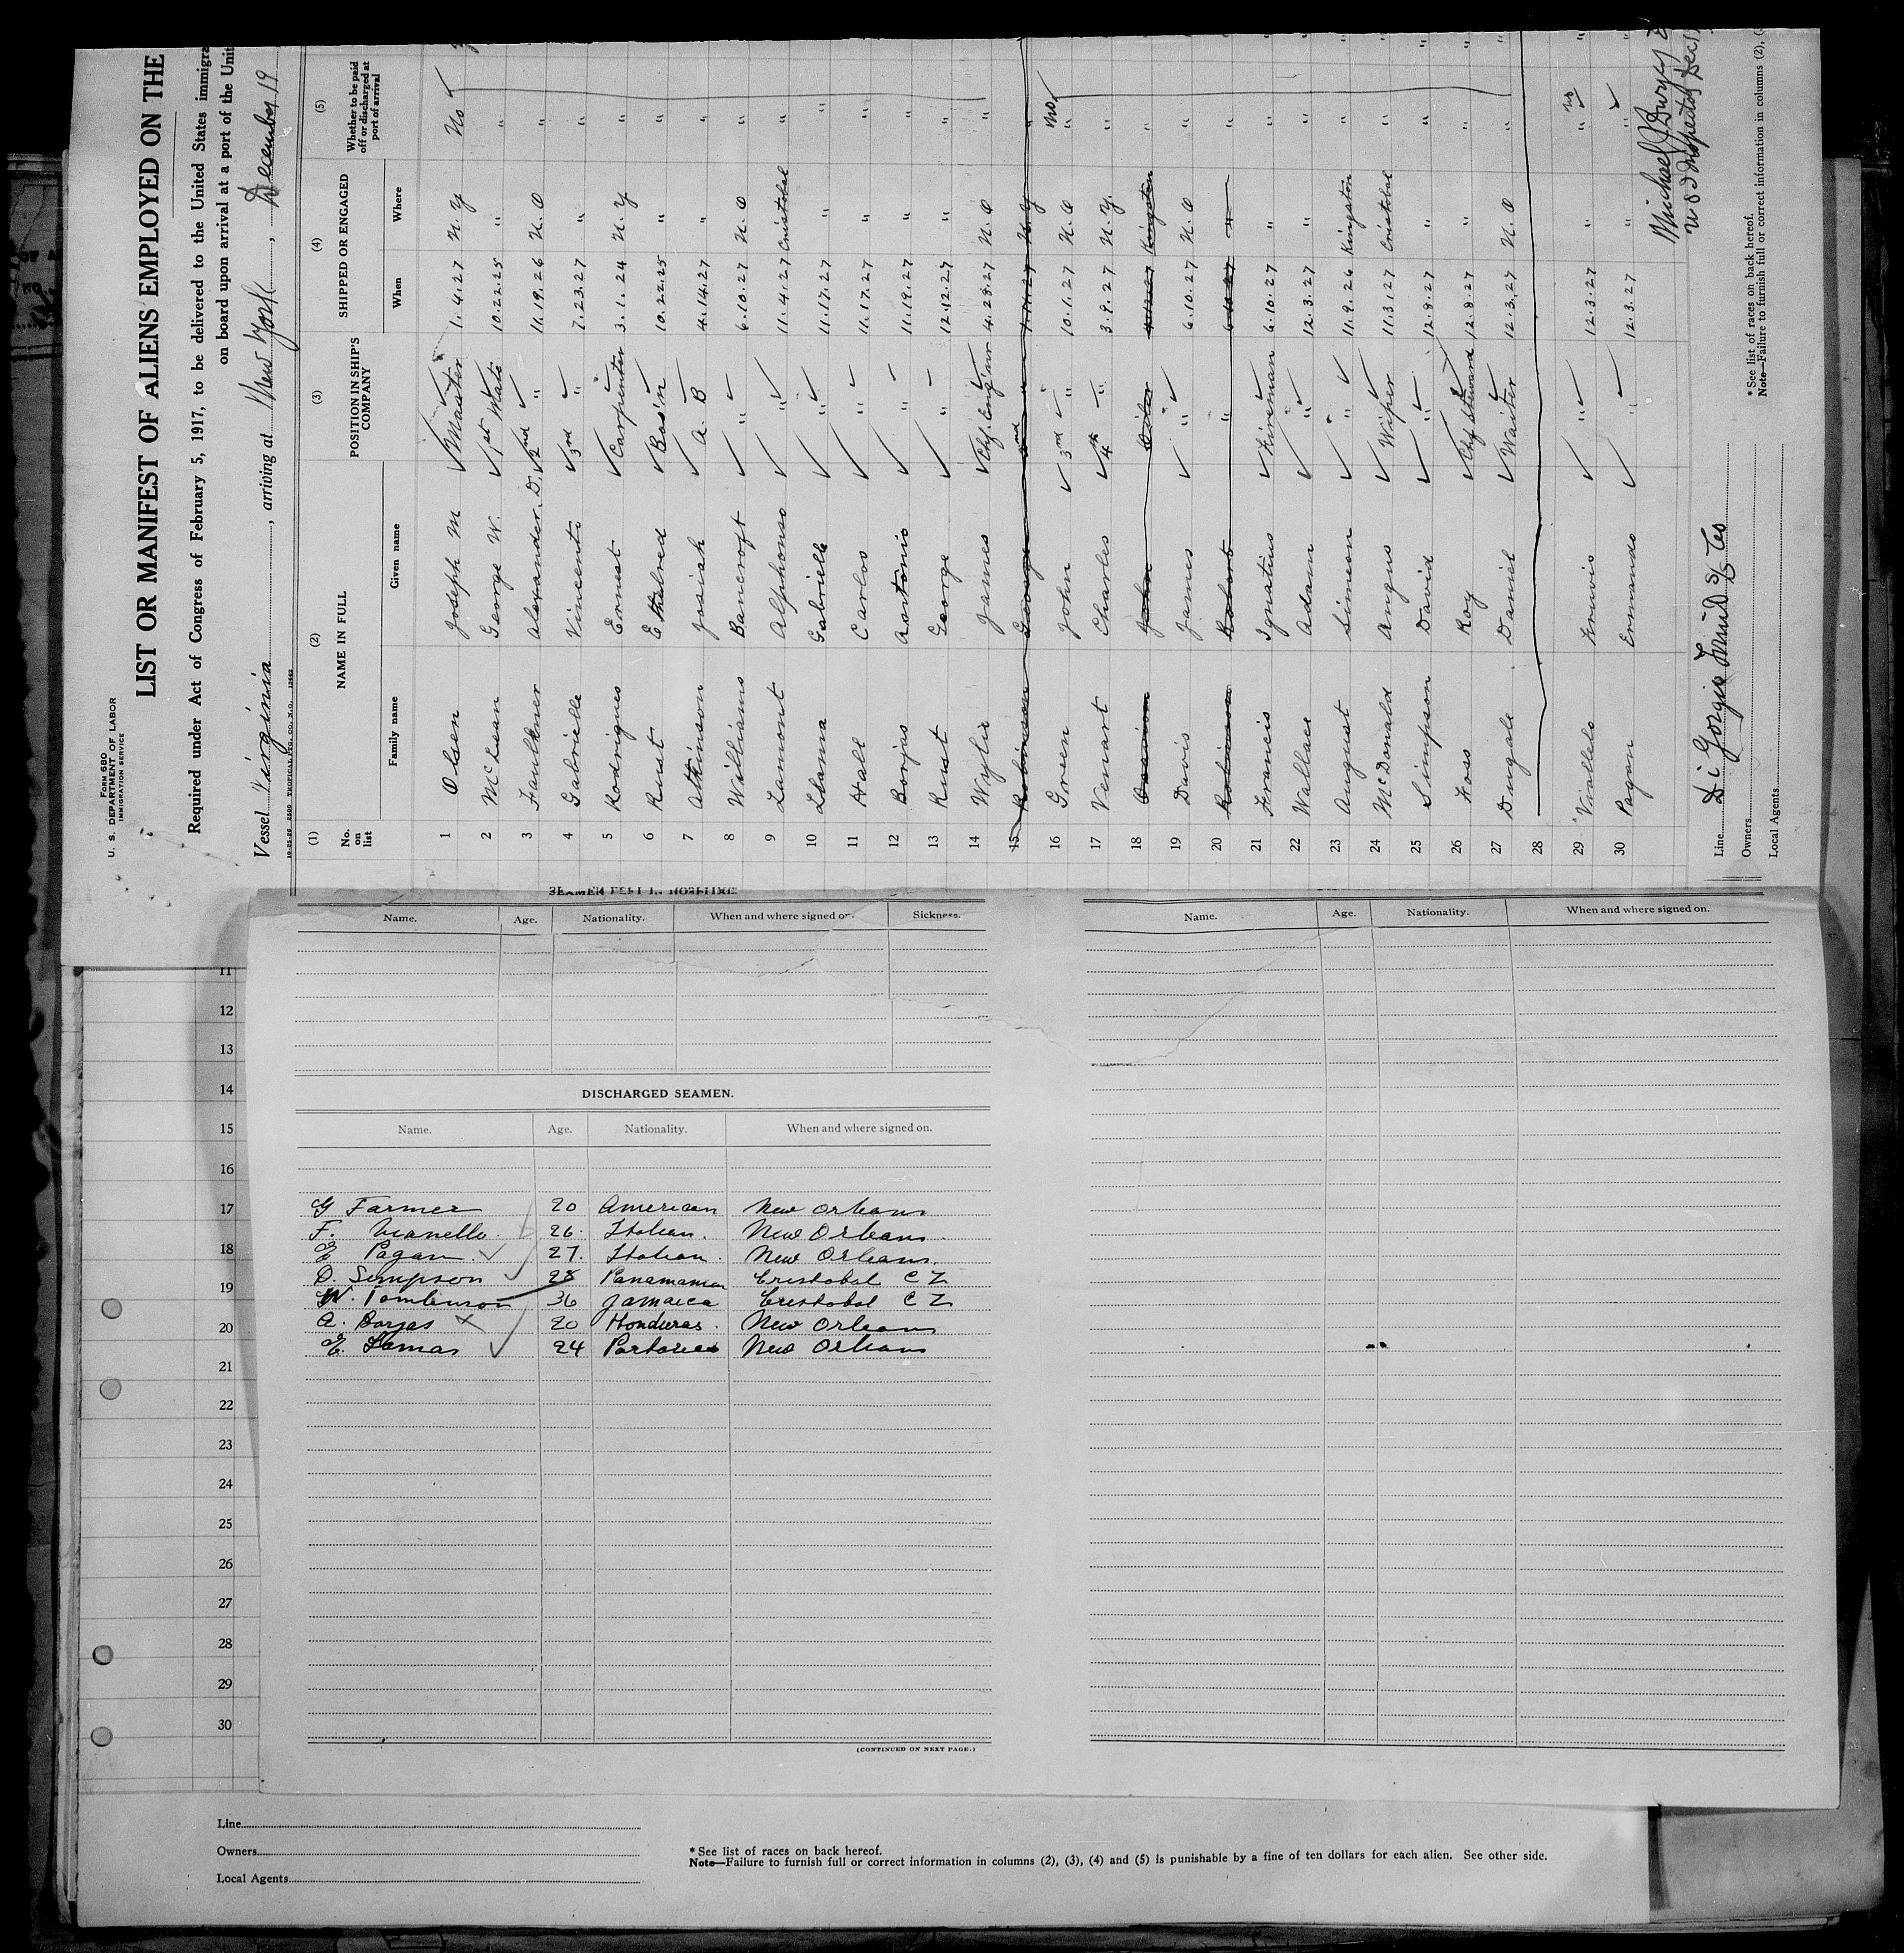 Form 680
U. S. DEPARTMENT OF LABOR
IMMIGRATION SERVICE
LIST OR MANIFEST OF ALIENS EMPLOYED ON THE
Required under Act of Congress of February 5, 1917, to be delivered to the United States immigra
on board upon arrival at a port of the Unit
Vessel Virginia, arriving at New York, December 19
(1) (2) (3) (4) (5)
No. on list NAME IN FULL POSITION IN SHIP'S COMPANY SHIPPED OR ENGAGED Whether to be paid off or discharged at port of arrival
Family name Given name When Where
1 Olsen Joseph M Master 1.4.27 N.Y No
2 McLean George W. 1st Mate 10.22.25 " "
3 Faulkner Alexander D. 2nd " 11.19.26 N.O "
4 Gabrielle Vincento 3rd " 7.23.27 " "
5 Rodrigues Ernest Carpenter 3.1.24 N.Y "
6 Rust Ethelred Bos'n 10.22.25 " "
7 Atkinson Josiah A.B 4.14.27 " "
8 Williams Bancroft " 6.10.27 N.O "
9 Lamont Alphonso " 11.4.27 Cristobal "
10 Llanna Gabrielle " 11.17.27 " "
11 Hall Carlos " 11.17.27 " "
12 Borjas Antonio " 11.19.27 " "
13 Rust George " 12.12.27 " "
14 Wylie James Chf. Eng'nr 4.23.27 N.O "
15 Robinson George 2nd " N.Y "
16 Green John 3rd " 10.1.27 N.O No "
17 Venart Charles 4th " 3.9.27 N.Y. "
18 John Oiler Kingston "
19 Davis James " 6.10.27 N.O "
20 Robinson Robert " 6.10.27 " "
21 Francis Ignatius Fireman 6.10.27 " "
22 Wallace Adam " 12.3.27 " "
23 August Simeon " 11.9.26 Kingston "
24 McDonald Angus Wiper 11.3.27 Cristobal "
25 Simpson David " 12.8.27 " "
26 Foss Roy Chf Steward 12.8.27 " "
27 Dingale Daniel Waiter 12.3.27 N.O "
28
29 Viallelo " 12.3.27 " " No
30 Pagan Ermando " 12.3.27 " "
Michael J
U S Inspector Dec
Line Di Giorgio Fruit Co
Owners
Local Agents
* See list of races on back hereof.
Note—Failure to furnish full or correct information in columns (2),
SEAMEN LEFT IN HOSPITAL
Name. Age. Nationality. When and where signed on. Sickness.
Name. Age. Nationality. When and where signed on.
DISCHARGED SEAMEN.
Name. Age. Nationality. When and where signed on.
G Farmer 20 American New Orleans
F. Vianello 26 Italian. New Orleans.
E Pagan 27 Italian. New Orleans.
D. Simpson 28 Panamanian Cristobal C Z
W. Tomlinson 36 Jamaica Cristobal C Z
A. Borjas 20 Honduras. New Orleans
E. Lamas 24 Portorico New Orleans
(CONTINUED ON NEXT PAGE.)
11
12
13
14
15
16
17
18
19
20
21
22
23
24
25
26
27
28
29
30
Line
Owners
Local Agents
* See list of races on back hereof.
Note—Failure to furnish full or correct information in columns (2), (3), (4) and (5) is punishable by a fine of ten dollars for each alien. See other side.